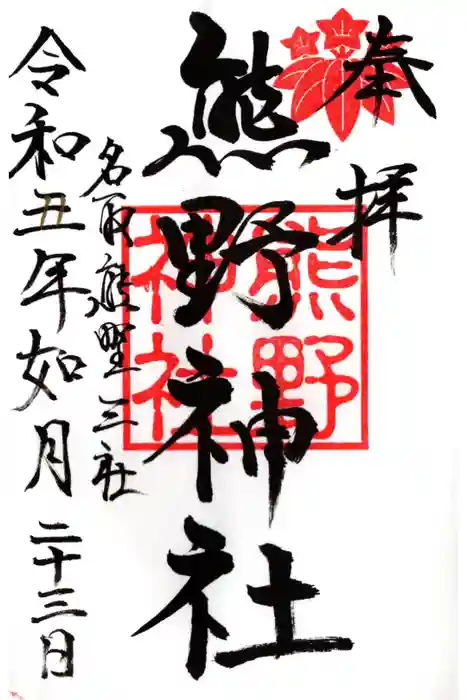 奉拝
熊野神社
熊野
神社
名取熊野三社
令和丑年如月二十三日